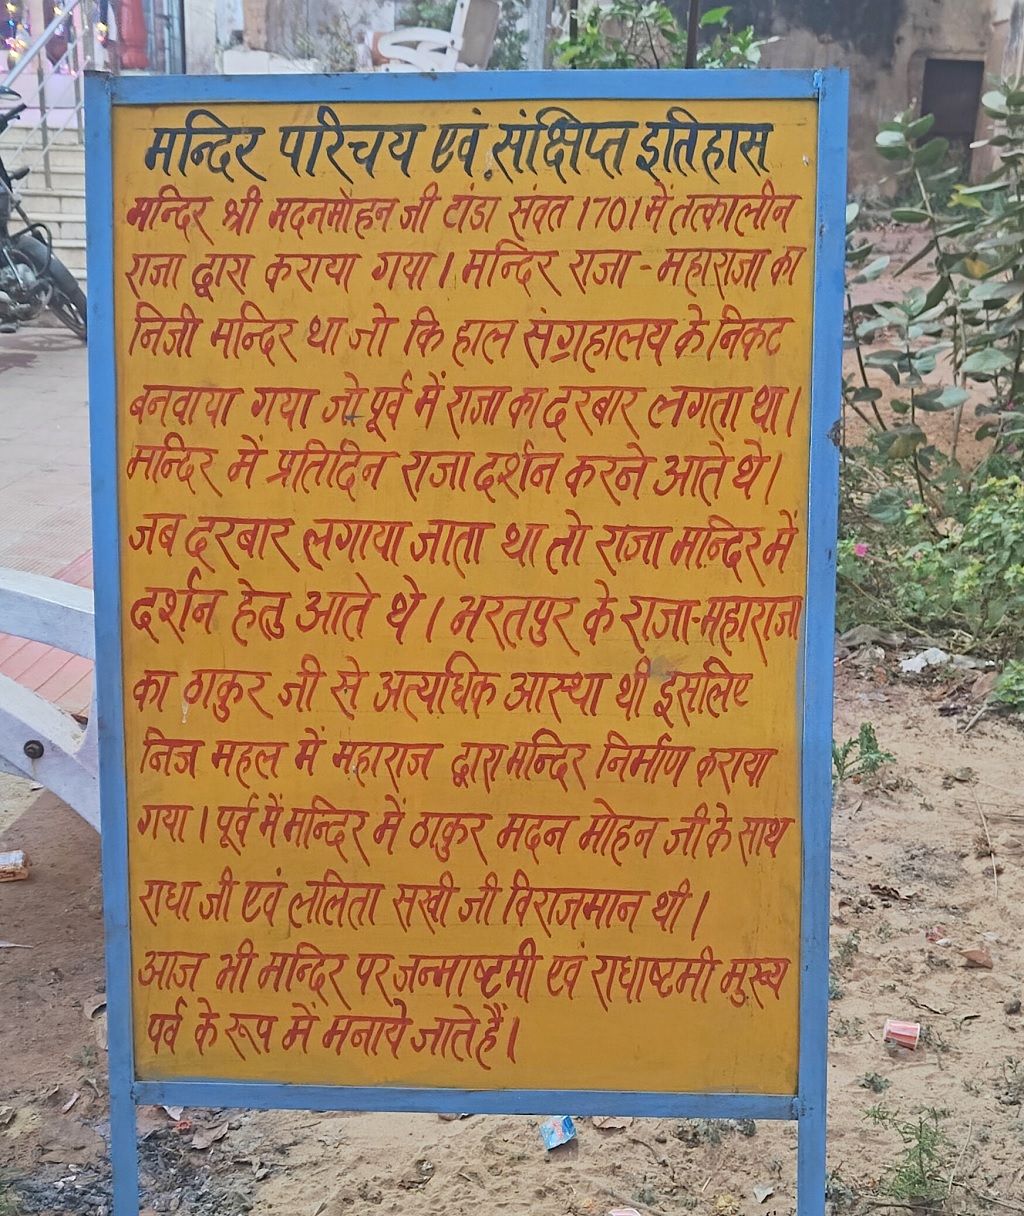 मन्दिर परिचय एवं संक्षिप्त इतिहास
मन्दिर श्री मदनमोहन जी टांडा संवत 1701 में तत्कालीन
राजा द्वारा कराया गया। मन्दिर राजा - महाराजा का
निजी मन्दिर था जो कि हाल संग्रहालय के निकट
बनवाया गया जो पूर्व में राजा का दरबार लगता था।
मन्दिर में प्रतिदिन राजा दर्शन करने आते थे।
जब दरबार लगाया जाता था तो राजा मन्दिर में
दर्शन हेतु आते थे। भरतपुर के राजा-महाराजा
का ठाकुर जी से अत्यधिक आस्था थी इसलिए
निज महल में महाराज द्वारा मन्दिर निर्माण कराया
गया। पूर्व में मन्दिर में ठाकुर मदन मोहन जी के साथ
राधा जी एवं ललिता सखी जी विराजमान थी।
आज भी मन्दिर पर जन्माष्टमी एवं राधाष्टमी मुख्य
पर्व के रूप में मनाये जाते हैं।